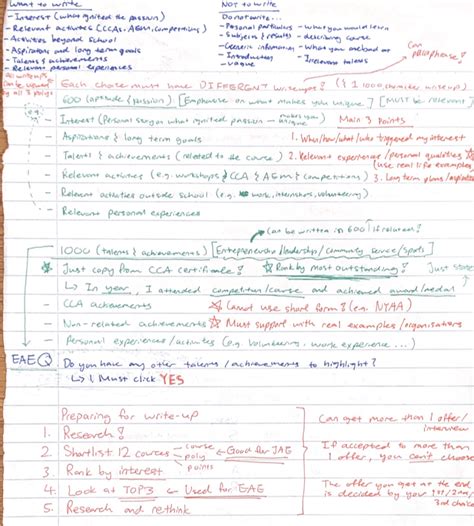 What to write
- Interest (what ignited the passion)
- Relevant activities (CCAs, ASM, competitions)
- Activities beyond school
- Aspirations and long term goals
- Talents & achievements
- Relevant personal experiences
NOT to write
Do not write...
- Personal particulars
- Subjects & results
- Generic information
- Introduction
- vague
- what you would learn
- describing course
- What you and
- Irrelevant talents
Can paraphrase?
All writeups can be viewed by all 3 polys
Each choice must have DIFFERENT writeups? (& 1 1000, character writeup)
600 (aptitude & passion) [Emphasise on what makes you unique] [Must be relevant]
e.g.
- Interest (Personal story on what ignited passion - makes you unique)
Main 3 Points
- Aspirations & long term goals
1. When/how/what/who triggered my interest
- Talents & achievements (related to the course)
2. Relevant experience/personal qualities
use real life examples
- Relevant activities (e.g. workshops & CCA & ASM & competitions)
3. Long term plans/aspirations
- Relevant activities outside school (e.g. work, internships, volunteering)
- Relevant personal experiences
Can be written in 600 if related?
1000 (talents & achievements) [Entrepreneurship/leadership/community service/sports]
Just copy from CCA certificate? Rank by most outstanding? Just state
↳ In year, I attended competition/course and achieved award/medal
- CCA achievements
Cannot use short form? (e.g. NYAA)
- Non-related achievements
Must support with real examples/organisations
- Personal experiences/activities (e.g. Volunteering, work experience...)
EAE Q
Do you have any other talents/achievements to highlight?
↳ I Must click YES
Preparing for write-up
1. Research?
2. Shortlist 12 courses
course
poly
points
Good for JAE
3. Rank by interest
4. Look at TOP3 ← Used for EAE
5. Research and rethink
Can get more than 1 offer/
interview
If accepted to more than
1 offer, you can't choose
The offer you get at the end
is decided by your 1st/2nd/
3rd choice